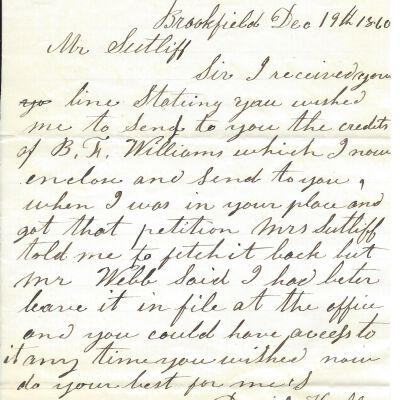 Brookfield Dec 19th 1860
Mr Sutliff
Sir I received your
line Statiing you wished
me to Send to you the credits
of B. F. Williams which I now
enclose and send to you,
when I was in your place and
got that petition Mrs Sutliff
told me to fetch it back but
Mr Webb Said I had beter
leave it in file at the office
and you could have avcess to
it any time you wished now
do your best for me